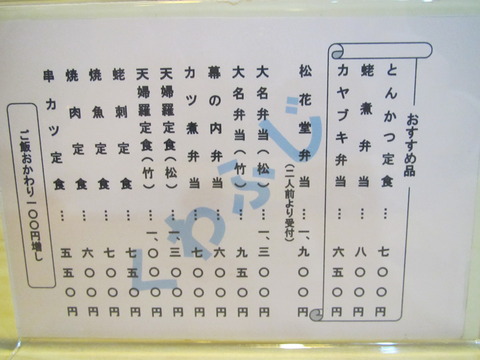 おすすめ品
とんかつ定食…七〇〇円
蛯煮弁当…八〇〇円
カヤブキ弁当…六五〇円
松花堂弁当…一、九〇〇円
(二人前より受付)
大名弁当(松)…一、三〇〇円
大名弁当(竹)…九五〇円
幕の内弁当…六〇〇円
カツ煮弁当…七〇〇円
天婦羅定食(松)…一、三〇〇円
天婦羅定食(竹)…一、〇〇〇円
蛯刺定食…七五〇円
焼魚定食…七〇〇円
焼肉定食…六〇〇円
串カツ定食…五五〇円
ご飯おかわり一〇〇円増し
くわふじ